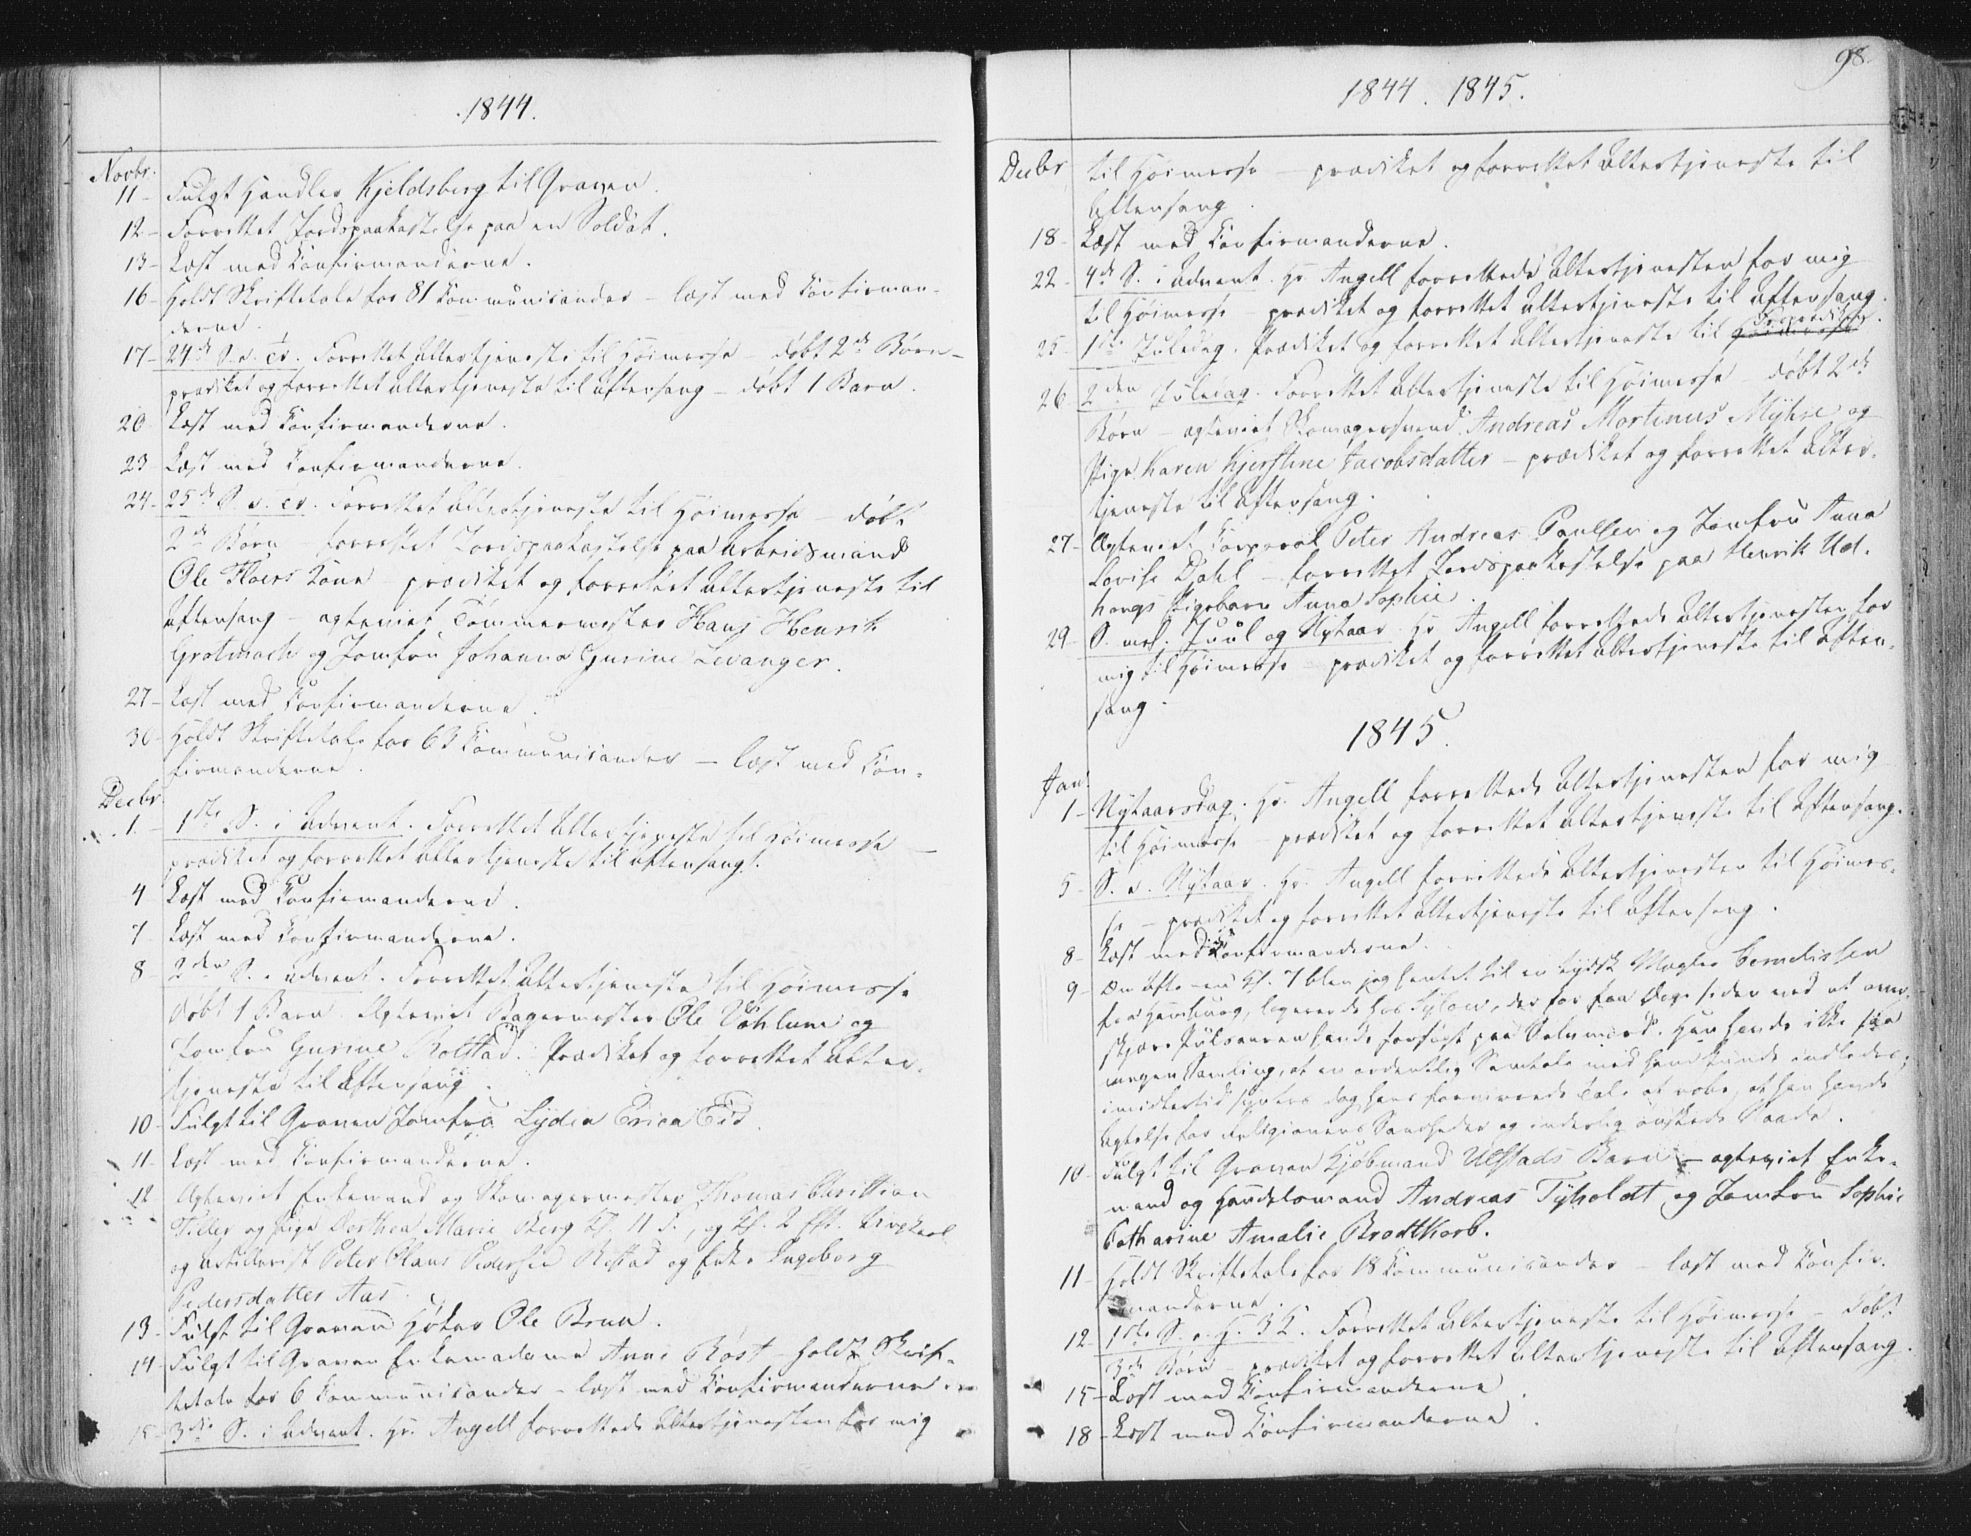 1844.
Novbr.
11 - Fulgt Handler Kjeldsberg til Graven.
12 - Forrettet Jordspaakastelse paa en Soldat.
13 - Læst med Confirmanderne.
16 - Holdt Skriftetale for 81 Communicander - læst med Confirman-
derne.
17 - 24de S. e. Tr. Forrettet Altertjeneste til Høimesse - døbt 2de Børn -
prædiket og forrettet Altertjeneste til Aftensang - døbt 1 Barn.
20 Læst med Confirmanderne.
23 - Læst med Confirmanderne.
24 - 25de S. e. Tr. Forrettet Altertjeneste til Høimesse - døbt
2de Børn - forrettet Jordspaakastelse paa Arbeidsmand
Ole Floers Kone - prædiket og forrettet Altertjeneste til
Aftensang - egteviet Tømmermester Hans Henrik
Grotmack og Jomfru Johanna Gurine Levanger.
27 - Læst med Confirmanderne.
30 - Holdt Skriftetale for 63 Communicander - læst med Con-
firmanderne.
Decbr.
1. - 1ste S. i Advent. Forrettet Altertjeneste til Høimesse -
prædiket og forrettet Altertjeneste til Aftensang.
4 Læst med Confirmanderne.
7 - Læst med Confirmanderne.
8 - 2den S. i Advent. Forrettet Altertjeneste til Høimesse
døbt 1 Barn. Egteviet Bagermester Ole Vöhlum og
Jomfru Gurine Rolstad. Prædiket og forrettet Alter-
tjeneste til Aftensang.
10 - Fulgt til Graven Jomfru Lydia Erica Eid.
11 - Læst med Confirmanderne.
12 Egteviet Enkemand og Skomagermester Thomas Christian
og Pige Dorthea Marie Berg Kl. 11 F., og Kl. 2 Eft.
og Artillerist Peter Claus Pedersen Restad og Enke Ingeborg
Pedersdatter Aas.
13 - Fulgt til Graven Høker Ole Brun.
14 - Fulgt til Graven Enkemadame Anne Rost - holdt Skrif-
tetale for 6 Communicander - læst med Confirmanderne.
15 - 3die S. i Advent. Hr. Angell forrettede Altertjenesten for mig
98.
1844. 1845.
Decbr til Høimesse - prædiket og forrettet Altertjeneste til
Aftensang.
18 - Læst med Confirmanderne.
22 - 4de S. i Advent. Hr. Angell forrettede Altertjenesten for mig
til Høimesse - prædiket og forrettet Altertjeneste til Aftensang.
25 - 1ste Juledag. Prædiket og forrettet Altertjeneste til Froprædiken.
26 - 2den Juledag. Forrettet Altertjeneste til Høimesse - døbt 2de
Børn - egteviet Skomagersvend Andreas Martinus Myhre og
Pige Karen Kjerstine Jacobsdatter - prædiket og forrettet Alter-
tjeneste til Aftensang.
27 - Egteviet Corporal Peter Andreas Paulsen og Jomfru Anna
Lovise Dahl - forrettet Jordspaakastelse paa Henrik Ud-
haugs Pigebarn Anna Sophie.
29 - S. mel. Juul og Nytaar. Hr. Angell forrettede Altertjenesten for
mig til Høimesse - prædiket og forrettet Altertjeneste til Aften-
sang.
1845.
Jan.
1 - Nytaarsdag. Hr. Angell forrettede Altertjenesten for mig
til Høimesse - prædiket og forrettet Altertjeneste til Aftensang.
5 - S. e. Nytaar. Hr. Angell forrettede Altertjenesten til Høimes-
se - prædiket og forrettet Altertjeneste til Aftensang.
8 - Læst med Confirmanderne.
9 - Kl. 7 blev jeg hentet til en tydsk Mægler Cornelissen
fra Hamburg, logerende hos Sylow, der for faa Dage siden ved at over-
skjære Pulsaaren havde forsøgt paa Selvmord. Han havde ikke saa
megen Samling, at en ordentlig Samtale med ham kunde indledes;
imidlertid syntes dog hans forvirrede Tale at robe, at han havde
Agtelse for Religionens Sandheder og inderlig ønskede Naade.
10 - Fulgt til Graven Kjøbmand Ulstads Barn - egteviet Enke-
mand og Handelsmand Andreas Tyholdt og Jomfru Sophie
Catharine Amalie Brodtkorb.
11 - Holdt Skriftetale for 18 Communicander - læst med Confir-
manderne.
12 - 1ste S. e. H. 3 K. Forrettet Altertjeneste til Høimesse - døbt
3de Børn - prædiket og forrettet Altertjeneste til Aftensang.
15 - Læst med Confirmanderne.
18 - Læst med Confirmanderne.